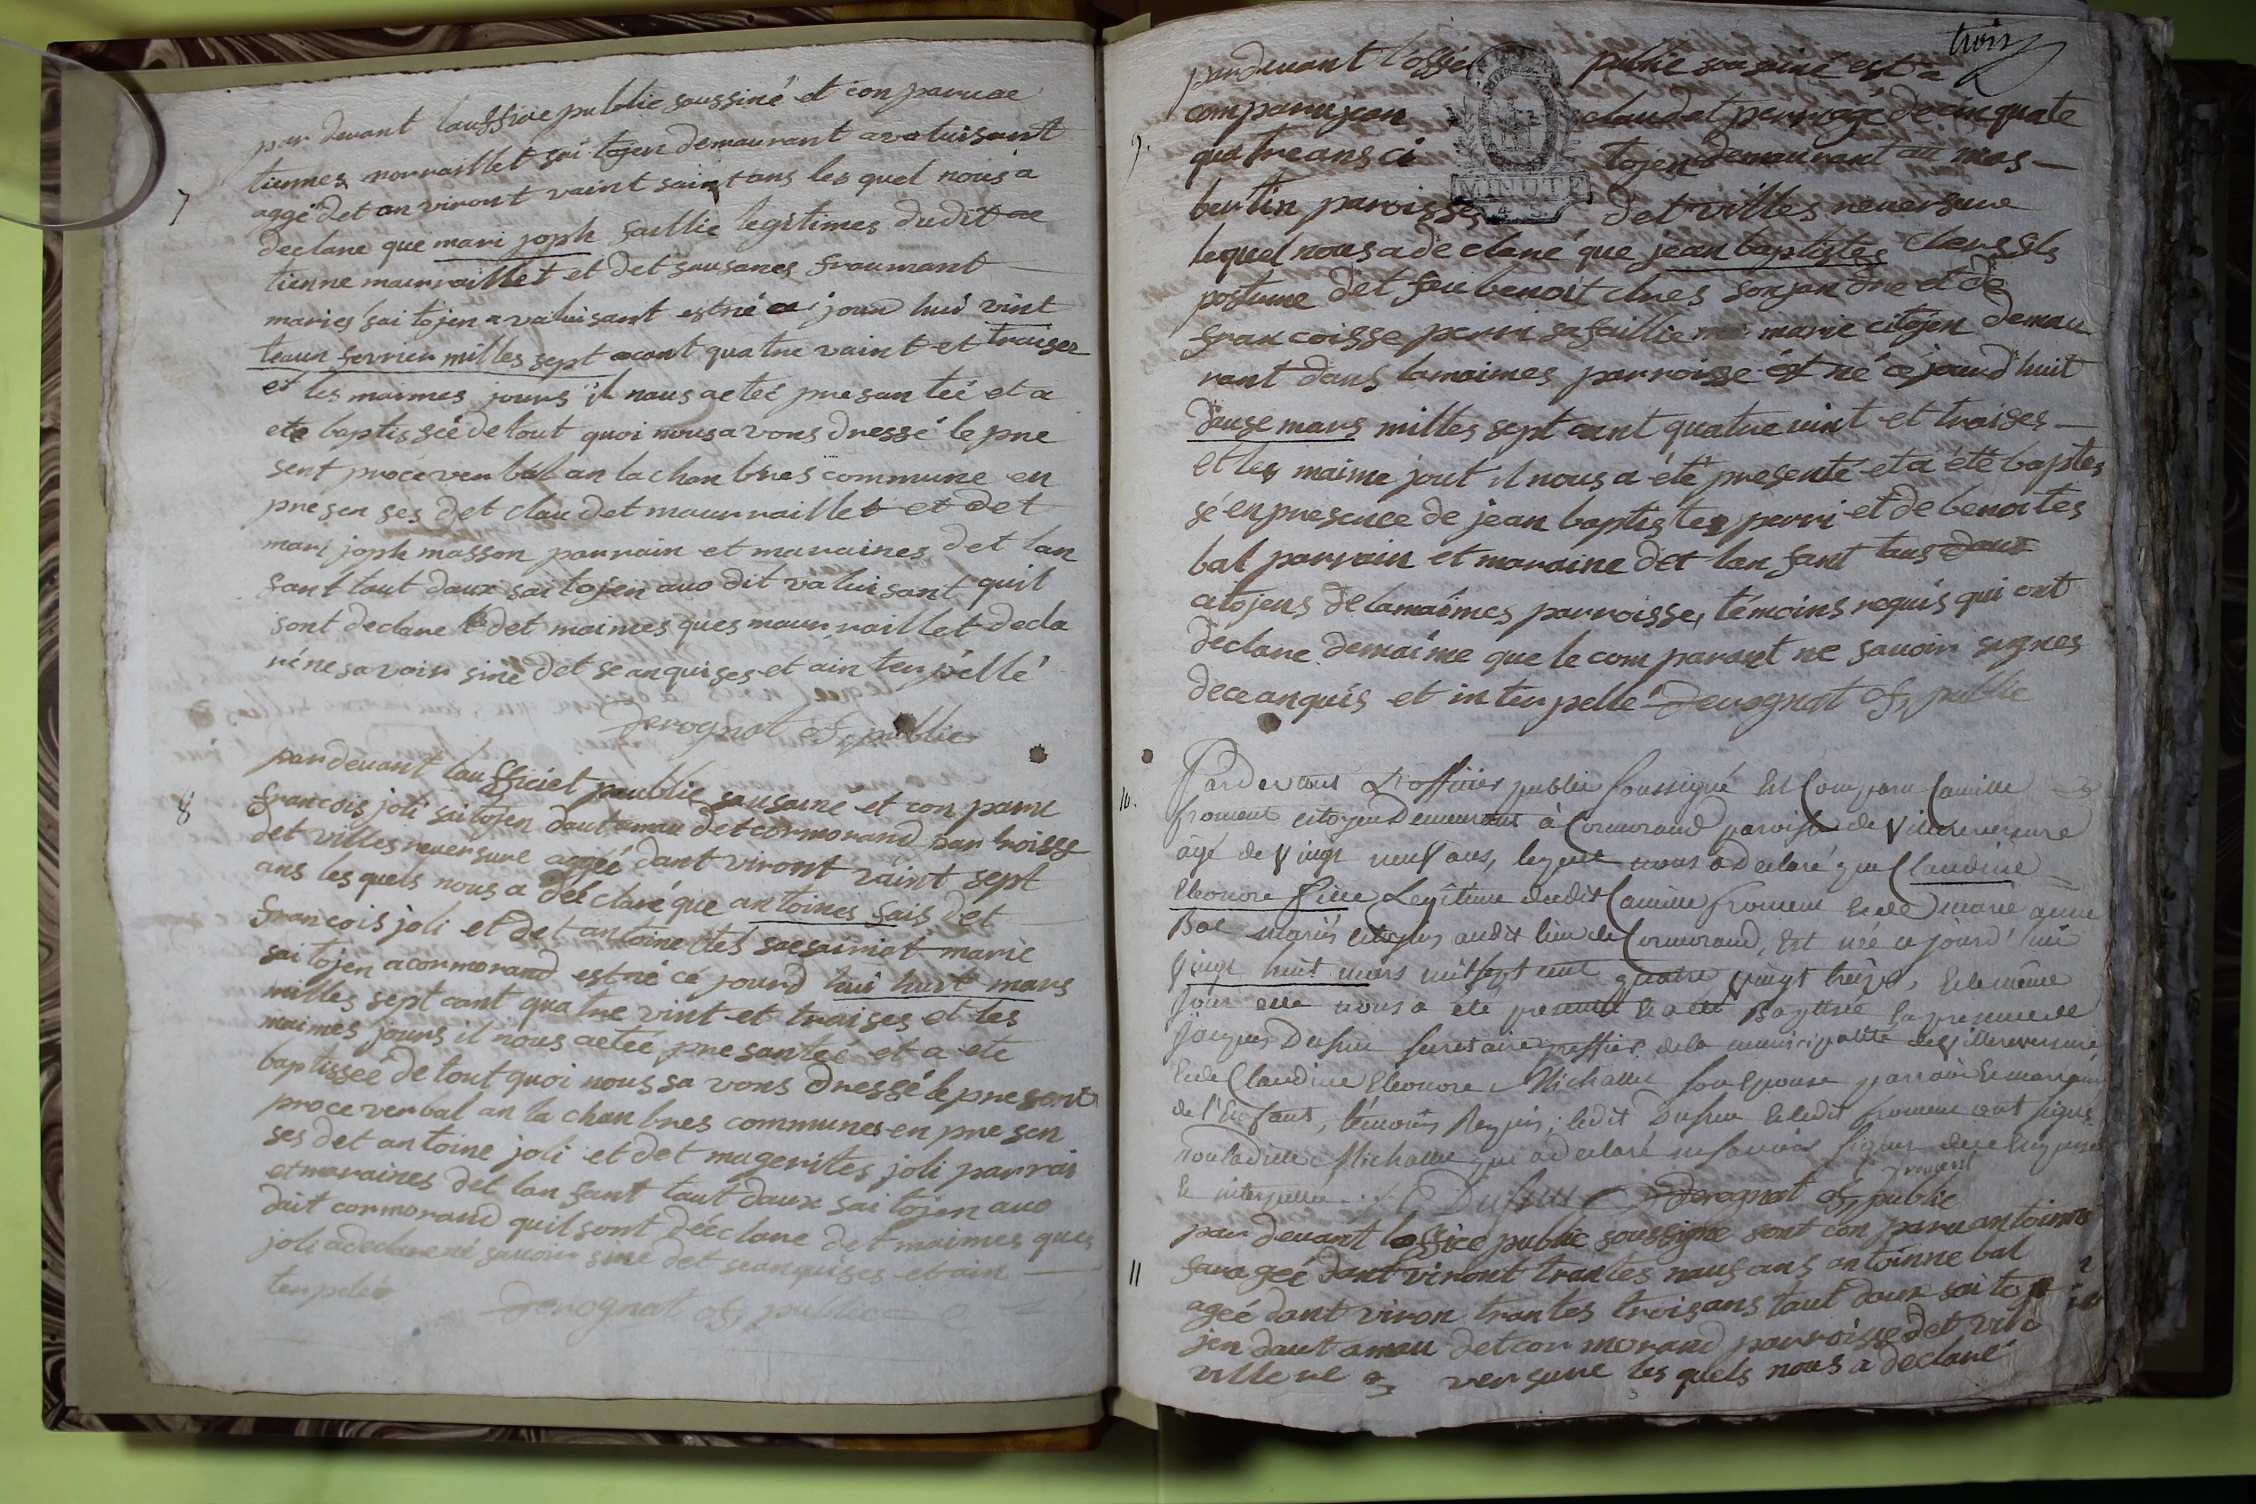 par devant lauffice public soussiné et con paru ae
tiennes mourraillet sai tojen demaurant a valuisant
7 aggé det an viront vaint saint ans les quel nous a
declare que mari joph faillie legitimes dudit ae
tienne maurraillet et det sausanes fraumant
maries sai tojen a valuisant est né ce jourd hui vint
teaun fevrier milles sept cant quatre vaint et traises
et les maimes jours il nous aeteé presanteé et a
ete baptisseé de tout quoi nous avons dressé le pre
sent proce verbal an la chanbres commune en
presen ses det claudet maurraillet et det
mari joph masson parrain et maraines det lan
fant tout daux sai tojen auo dit valuisant quil
sont declare det maimes ques maurraillet decla
ré ne savoir siné det se anquises et ain terpellé
Derognat of, public
par devant laufficiet paublic sousainé et con paru
8 francois joli saitojen dautamau det cormorand parroisse
det villes reversure aggéé dant viront vaint sept
ans les quels nous a déclaré que antoines fais det
francois joli et det antoinettes marie
sai tojen a cormorand est né cé jourd hui huit mars
milles sept cant quatre vint et traises et les
maimes jours il nous aeteé presanteé et a ete
baptisseé de tout quoi nous sa vons dressé le present
proce verbal an la chanbres communes en presen
ses det antoine joli et det magerites joli parrai
et maraines det lan fant taut daux sai tojen auo
dit cormorand quil sont dééclare det maimes ques
joli a declarené savoir siné det seanquises et ain
terpelér
Derognat of, public
trois
par devant l'offi public sousiné est
comparu jean claudat perri agé de cinquate
9. quatre ans ci tojen demeurant au mas
bertin paroisses det villes reversure
lequel nous a declaré que jean baptistes clers fils
postume det feu benoit clres son jandre et de
francoisse perri sa faillie marie citojen demau
rant dans lamaimes parroisse est né cé jourd huit
dause mars milles sept cant quatre vint et traises
et les maime jout il nous a été presenté et a été baptes
sé en presence de jean baptistes perri et de benoites
bal parrain et maraine det lan fant taus daux
citojens de lamaimes parroisse, témoins requis qui ont
declare demaime que le comparant ne savoir signes
dece anquis et interpellé Derognat of, public
10. Pardevant L'officier public soussigné Est Comparu Camille
froment citoyen Demeurant à Cormorand paroisse de Villereversure
âgé de Vingt neuf ans, lequel nous a declaré que Claudine
Eleonore fille Legitime dudit Camille froment et de marie anne
Bal mariés citoyens audit lieu de Cormorand, Est née ce jourd'hui
Vingt huit mars mil sept cent quatre Vingt treize, et le même
Jour elle nous a été presenté et a été Baptisée En presence de
Jacques Dufour secretaire greffier de la municipalité de Villereversure
Et de Claudine Eleonore Michallet son Epouse parrain et marraine
de l'Enfant, témoins Requis; ledit Dufour et ledit froment ont signés
non ladite Michallet qui a declaré ne savoir signer de ce Enquise
froment
& interpellée Dufour Derognat of, public
par devant loffice public soussigné sont con paru antoinne
11 fara geé dant viront trantes naus ans antoinne bal
ageé dant viron trantes trois ans taut daux sai to
jen dautamau det cor morand parroisse det vile
ville re versure les quels nous a declaré